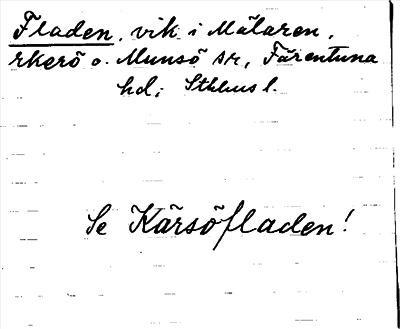 Fladen, vik i Mälaren,
rkerö o. Munsö sr, Färentuna
hd; Sthlms l.
Se Kärsöfladen!